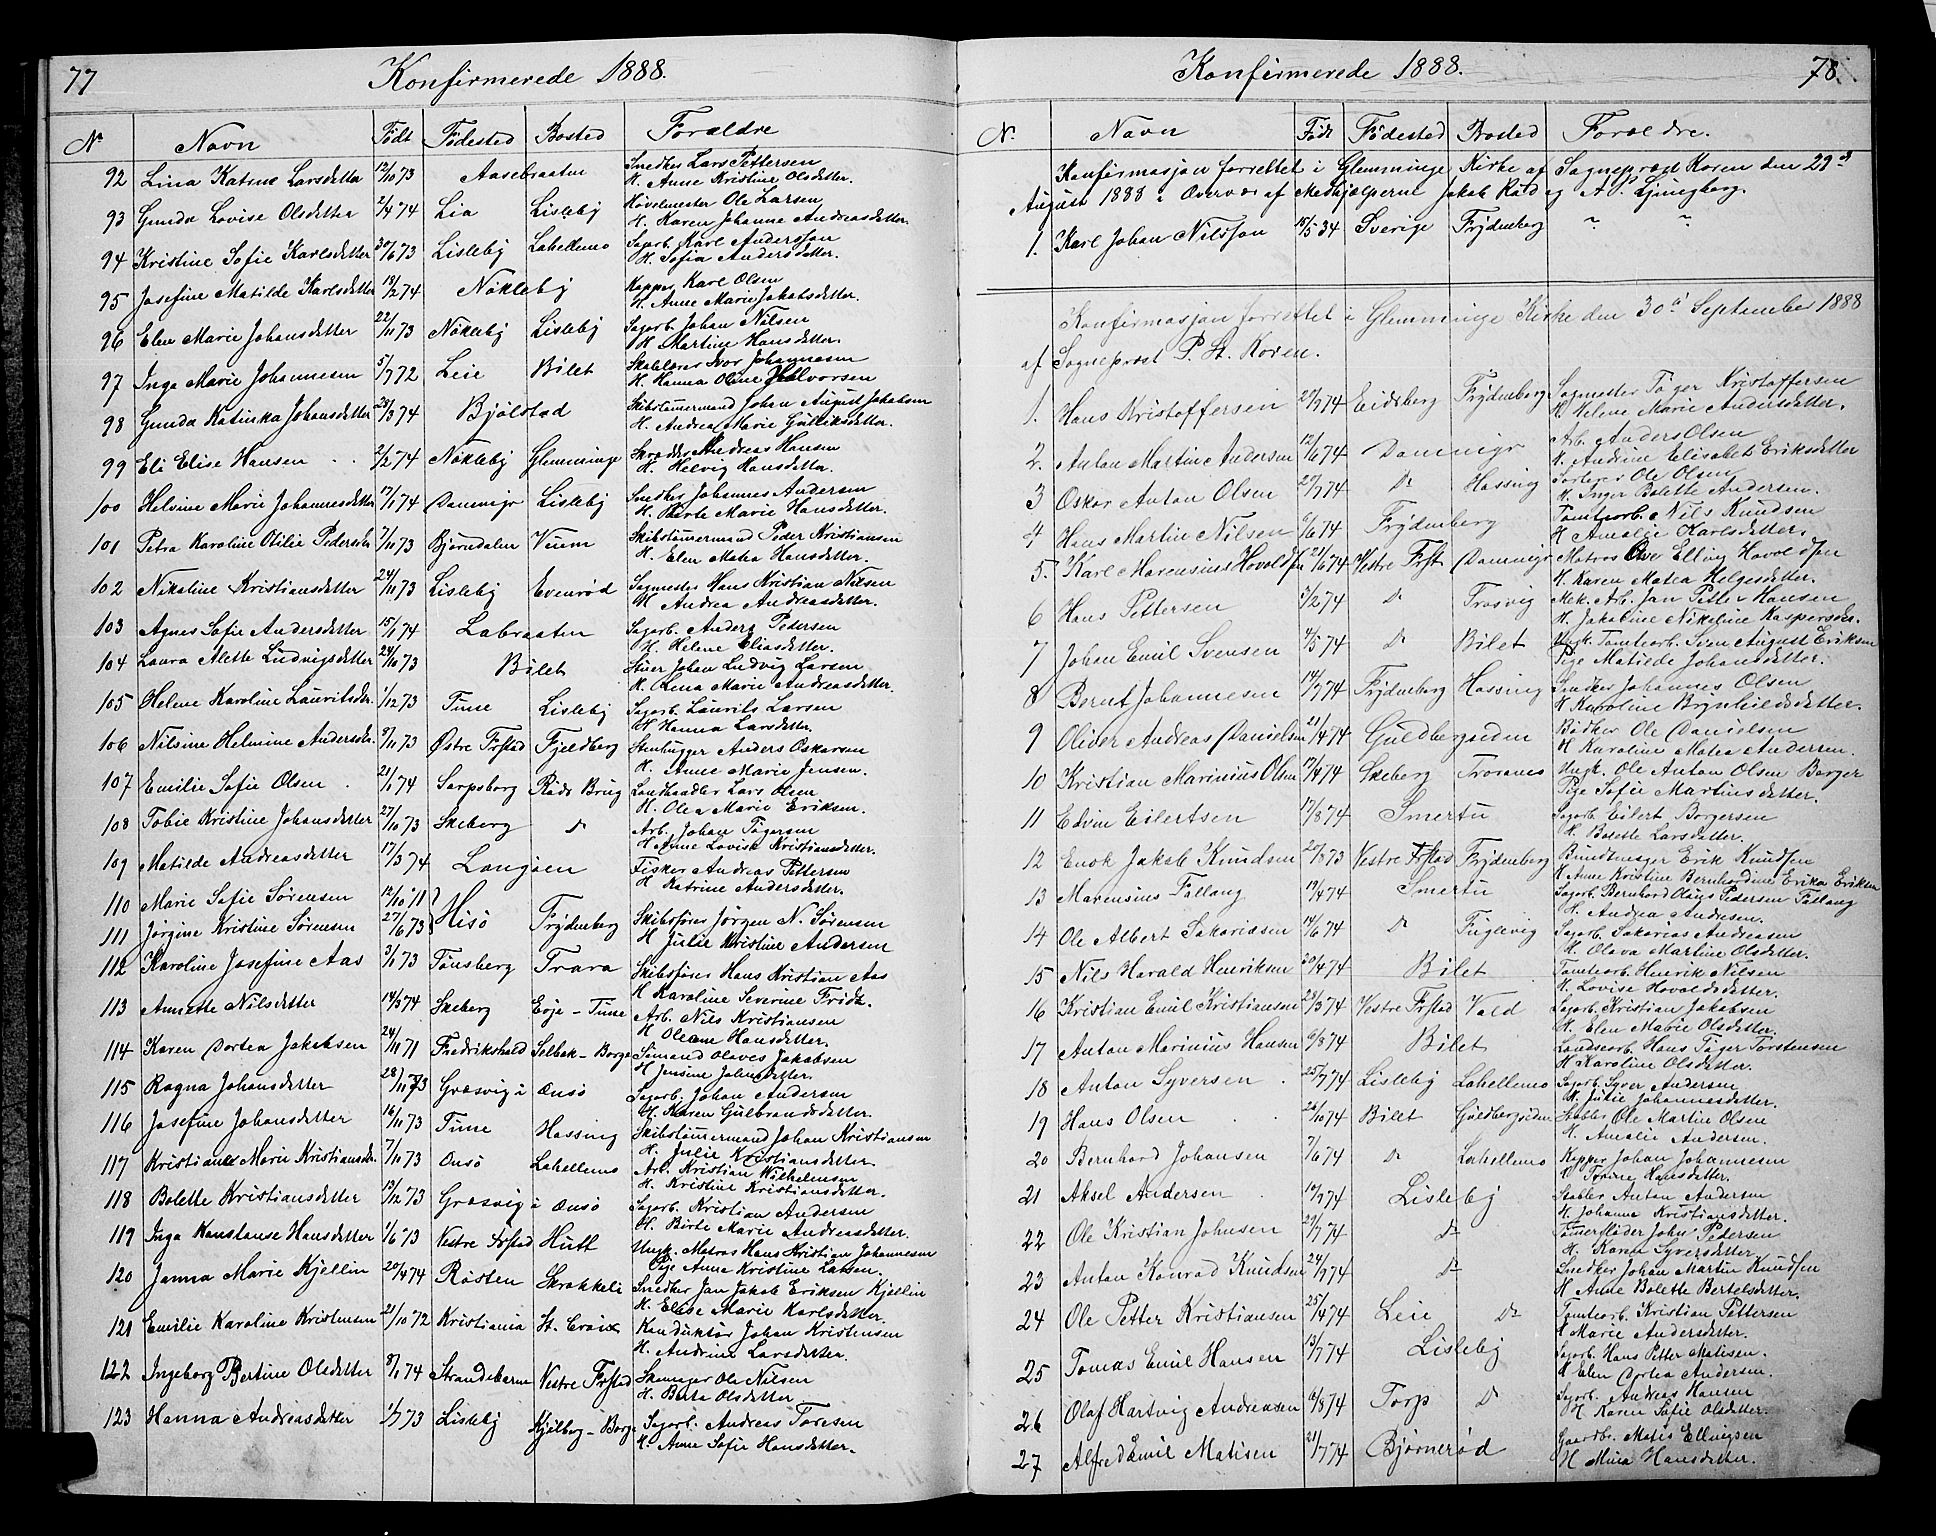 77 Konfirmerede 1888.
No Navn Født Fødested Bosted Forældre
92 Lina Katrine Larsdatter 12/10 73 Aasebraaten Snedker Lars Pettersen
H. Anne Kristine Olsdatter.
93 Gunda Lovise Olsdatter 2/4 74 Lia Lisleby Høvelmester Ole Larsen
H. Karen Johanne Andreasdatter.
94 Kristine Sofie Karlsdatter 30/6 73 Lisleby Lahellemo Sagarb. Karl Anderssen
H. Sofia Andersdatter.
95 Josefine Matilde Karlsdatter 19/2 74 Nøkleby Kapper Karl Olsen
H. Anne Marie Jakobsdatter.
96 Elen Marie Johansdatter 22/11 73 Nøkleby Lisleby Sagarb. Johan Nilsen
H. Martine Hansdatter.
97 Inga Marie Johannesen 5/7 72 Leie Bilet Skolelærer Ivar Johannesen
H. Hanna Oline Halvorsen
98 Gunda Katinka Johansdatter 26/3 74 Bjølstad Skibstømermand Johan August Jakobsen
H. Andrea Marie Gulliksdatter.
99 Eli Elise Hansen 2/2 74 Nøkleby Glemminge Skrædder Andreas Hansen
H. Helvig Hansdatter.
100 Helvine Marie Johannesdatter 17/1 74 Dammyr Lisleby Snedker Johannes Andersen
H. Berte Marie Hansdatter.
101 Petra Karoline Otilie Pedersdtr. 7/10 73 Bjørndalen Vuum Skibstømermand Peder Kristiansen
H. Elen Matea Hansdatter.
102 Nikoline Kristiansdatter 24/11 73 Lisleby Evenrød Sagmester Hans Kristian Nilsen
H. Andrea Andreasdatter.
103 Agnes Sofie Andersdatter 15/1 74 Labraaten Sagarb. Anders Pedersen
H. Helene Eliasdatter.
104 Laura Alette Ludvigsdatter 24/10 73 Bilet Stuer Johan Ludvig Larsen
H. Lena Marie Andreasdatter.
105 Helene Karoline Lauritsdtr. 1/12 73 Tune Lisleby Sagarb. Laurits Larsen
H. Hanna Larsdatter
106 Nilsine Helmine Andersdtr. 8/11 73 Østre Frstad Fjeldberg Stenhugger Anders Oskarsen
H. Anne Marie Jensen.
107 Emilie Sofie Olsen 21/1 74 Sarpsborg Raads Brug Landhandler Lars Olsen
H. Olea Marie Eriksen.
108 Tobie Kristine Johansdatter 27/10 73 Skeberg do Arb. Johan Tøgersen
H. Anne Lovise Kristiansdatter.
109 Matilde Andreasdatter 17/3 74 Langøen Fisker Andreas Pettersen
H Katrine Andersdatter.
110 Marie Sofie Sørensen 12/10 71
111 Jørgine Kristine Sørensen 27/6 73 Hisø Frydenberg Skibsfører Jørgen N. Sørensen
H Julie Kristine Andersen
112 Karoline Josefine Aas 3/1 73 Tønsberg Trara Skibsfører Hans Kristian Aas
H Karoline Severine Fridt.
113 Annette Nilsdatter 14/3 74 Skeberg Eøje - Tune Arb. Nils Kristiansen
H Oleane Hansdatter.
114 Karen Dortea Jakobsen 24/11 71 Fredrikshald Selbak - Borge Sømand Olaves Jakobsen
H Jensine Johnsdatter.
115 Ragna Johansdatter 28/10 73 Græsvig i Onsø Sagarb. Johan Andersen
H. Karen Gulbrandsdatter.
116 Josefine Johansdatter 16/11 73 Tune Hassing Skibstømermand Johan Kristiansen
H. Julie Kristiansdatter.
117 Kristiane Marie Kristiansdtr. 7/11 73 Onsø Lahellemo Arb. Kristian Wilhelmsen
H. Kristine Kristiansdatter.
118 Bolette Kristiansdatter 13/12 73 Græsvig i Onsø Sagarb. Kristian Andersen
H. Birte Marie Andreasdatter.
119 Inga Konstanse Hansdatter 1/6 73 Vestre Frstad Hutt Ungk. Matros Hans Kristian Johannesen
Pige Anne Kristine Larsen.
120 Janna Marie Kjellin 20/4 74 Røsten Skrakkeli Snedker Jan Jakob Eriksen Kjellin
H. Elise Marie Karlsdatter.
121 Emilie Karoline Kristensen 21/10 72 Kristiania St. Croix Konduktør Johan Kristensen
H. Andrine Larsdatter.
122 Ingeborg Bertine Olsdatter 8/1 74 Strandebarm Vestre Frstad Skomager Ole Nilsen
H. Berta Olsdatter.
123 Hanna Andreasdatter 1/7 73 Lisleby Kjølberg - Borge Sagarb. Andreas Toresen
H. Anne Sofie Hansdatter.
Konfirmerede 1888. 78.
N. Navn Født Fødested Bosted Forældre.
Konfirmasjon forrettet i Glemminge Kirke af Sogneprest Koren den 29de
August 1888 i Overvær af Medhjælperne Jakob Raad og A. P. Ljungberg.
1. Karl Johan Nilsson 15/5 34 Sverige Frydenberg " "
Konfirmasjon forrettet i Glemminge Kirke den 30te September 1888
af Sogneprest P. St. Koren.
1. Hans Kristoffersen 27/7 74 Eidsberg Frydenberg Sagmester Tøger Kristoffersen
H. Helene Marie Andersdatter.
2. Anton Martin Andersen 12/6 74 Dammyr Arb. Anders Olsen
H. Andrine Elisabet Eriksdatter
3 Oskar Anton Olsen 27/7 74 do Hassing Sorterer Ole Olsen
H. Inger Bolette Andersen.
4 Hans Martin Nilsen 6/6 74 Frydenberg Tomtearb. Nils Knudsen
H Amalie Karlsdatter.
5. Karl Marensius Hovoldsen 21/6 74 Vestre Frst Dammyr Matros Elling Hovoldsen
H. Karen Matea Helgesdatter.
6 Hans Pettersen 5/2 74 do Trosvig Mek. Arb. Jan Petter Hansen
H. Jakobine Nikoline Kaspersdtr.
7 Johan Emil Svensen 4/5 74 do Bilet Ungk. Tomtearb. Sven August Eriksen
Pige Matilde Johansdatter.
8 Bernt Johannesen 14/7 74 Frydenberg Hassing Snedker Johannes Olsen
H Karoline Brynhildsdatter.
9 Oliver Andreas Danielsen 21/4 74 Guldbergsiden Bødker Ole Danielsen
H Karoline Matea Andersen.
10 Kristian Marinius Olsen 17/4 74 Skeberg Trosvig Ungk. Ole Anton Olsen Borger
Pige Sofie Martinsdatter.
11 Edvin Eilertsen 17/8 74 Smertu Sagarb. Eilert Borgersen
H. Bolette Larsdatter.
12 Enok Jakob Knudsen 27/8 73 Vestre Frstad Frydenberg Bundtmager Erik Knudsen
H Anne Kristine Bernhardine Erika Eriksen
13 Marensius Fallang 19/4 74 Smertu Sagarb. Bernhard Olaus Pedersen Fallang
H. Andrea Andresen.
14 Ole Albert Sakariasen 14/6 74 do Fuglevig Sagarb. Sakarias Andreasen
H. Olava Martine Olsdatter.
15 Nils Harald Henriksen 20/4 74 Bilet Tomtearb. Henrik Nilsen
H. Lovise Hovoldsdatter.
16 Kristian Emil Kristiansen 28/3 74 Vestre Frstad Vald Sagarb. Kristian Jakobsen
H. Elen Marie Olsdatter.
17 Anton Marinius Hansen 6/8 74 Bilet Landsarb. Hans Tøger Torstensen
H Karoline Olsdatter.
18 Anton Syversen 25/7 74 Lisleby Lahellemo Sagarb. Syver Andersen
H. Julie Johannesdatter.
19 Hans Olsen 26/10 74 Bilet Guldbergsiden Stabler Ole Martin Olsen
H. Amalie Andersen.
20 Bernhard Johansen 7/6 74 do Lahellemo Kapper Johan Johannesen
H Torine Hansdatter.
21 Aksel Andersen 10/7 74 Lisleby Stabler Anton Andersen
H. Johanne Kristiansdatter.
22 Ole Kristian Johnsen 29/7 74 do Tømerfløder John Pedersen
H. Karen Syversdatter
23 Anton Konrad Knudsen 24/7 74 do Snedker Johan Martin Knudsen
H Anne Bolette Bertelsdatter.
24 Ole Petter Kristiansen 25/4 74 Leie do Tomtearb. Kristian Pettersen
H Marie Andersdatter.
25 Tomas Emil Hansen 13/7 74 Lisleby Sagarb. Hans Petter Matisen.
H Elen Dortea Andersen.
26 Olaf Hartvig Andreasen 14/8 74 Torp do Sagarb. Andreas Hansen
H Karen Sofie Olsdatter.
27 Alfred Emil Matisen 21/7 74 Bjørnerød Gaardbr. Matis Ellingsen
H Mina Hansdatter.